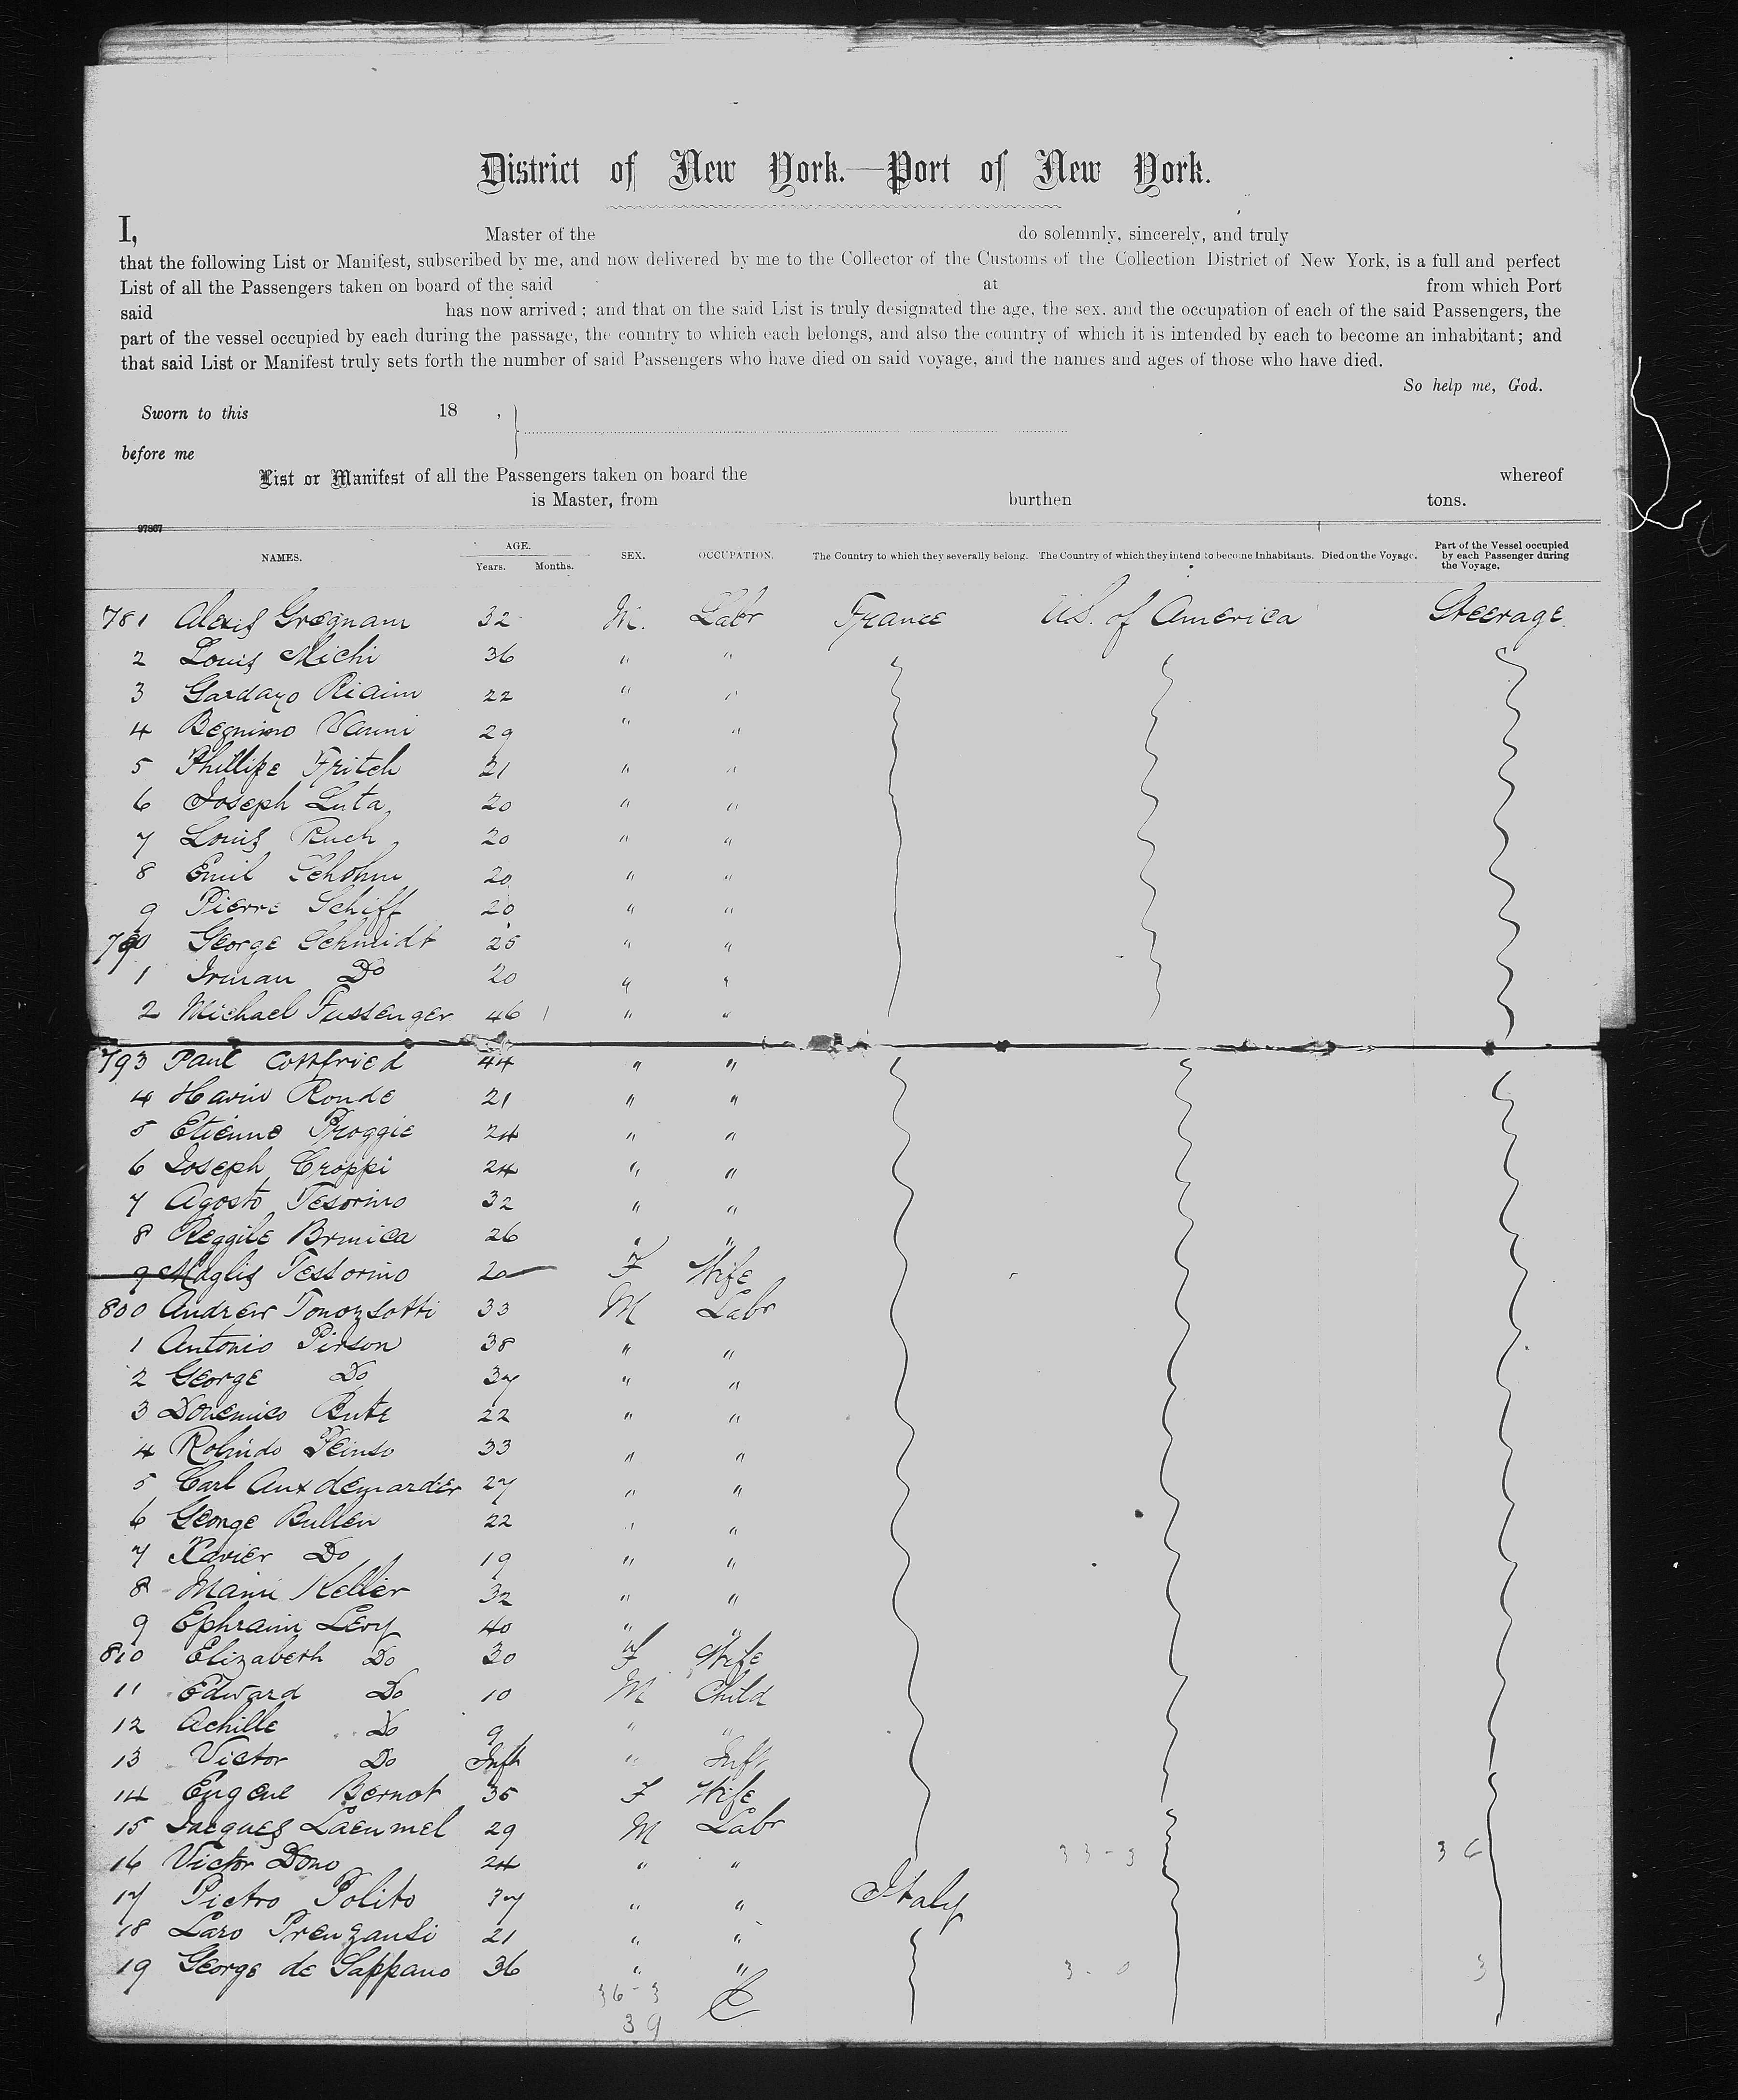 District of New York.—Port of New York.
I, Master of the do solemnly, sincerely, and truly
that the following List or Manifest, subscribed by me, and now delivered by me to the Collector of the Customs of the Collection District of New York, is a full and perfect
List of all the Passengers taken on board of the said at from which Port
said has now arrived; and that on the said List is truly designated the age, the sex, and the occupation of each of the said Passengers, the
part of the vessel occupied by each during the passage, the country to which each belongs, and also the country of which it is intended by each to become an inhabitant; and
that said List or Manifest truly sets forth the number of said Passengers who have died on said voyage, and the names and ages of those who have died.
So help me, God.
Sworn to this 18 ,
before me
List or Manifest of all the Passengers taken on board the whereof
is Master, from burthen tons.
97867
NAMES. AGE. Years. Months. SEX. OCCUPATION. The Country to which they severally belong. The Country of which they intend to become Inhabitants. Died on the Voyage. Part of the Vessel occupied by each Passenger during the Voyage.
781 Alexis Gregnam 32 M. Labr France U.S. of America Steerage
2 Louis Michi 36 " "
3 Gardazo Riaim 22 " "
4 Begnimo Vanni 29 " "
5 Phillipe Fritch 21 " "
6 Joseph Luta 20 " "
7 Louis Ruch 20 " "
8 Emil Schohm 20 " "
9 Pierre Schiff 20 " "
790 George Schmidt 25 " "
1 Irman Do 20 " "
2 Michael Fussenger 46 " "
793 Paul Cottfried 44 " "
4 Havin Ronde 21 " "
5 Etienne Proggie 24 " "
6 Joseph Croppi 24 " "
7 Agosto Tesorino 32 " "
8 Reggile Brmica 26 " "
9 Maglis Tessorino 20 F Wife
800 Andrew Tonozsotti 33 M Labr
1 Antonio Pirson 38 " "
2 George Do 37 " "
3 Domenico Rute 22 " "
4 Robindo Peinso 33 " "
5 Carl Auxdemarder 27 " "
6 George Bullen 22 " "
7 Xavier Do 19 " "
8 Maini Keller 32 " "
9 Ephraim Levy 40 " "
810 Elizabeth Do 30 F Wife
11 Edward Do 10 M Child
12 Achille Do 9 " "
13 Victor Do Inft " Inft
14 Eugene Bernot 35 F Wife
15 Jacques Laeumel 29 M Labr
16 Victor Dono 24 " " 33-3 36
17 Pietro Polito 37 " " Italy
18 Lazo Prenzansi 21 " "
19 George de Sappano 36 " " 3-0 3
36-3
39